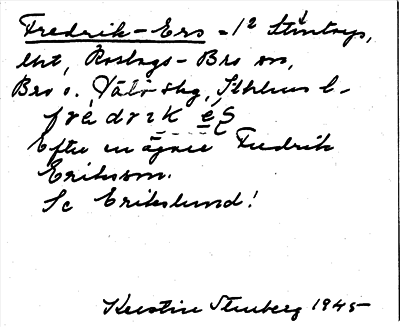 Fredrik-Ers = 1² Stentorp,
lht, Roslags-Bro sn,
Bro o. Vätö skg, Sthlms l-
fredrik és
Efter en ägare Fredrik
Eriksson.
Se Erikslund!
Kerstin Stenberg 1945